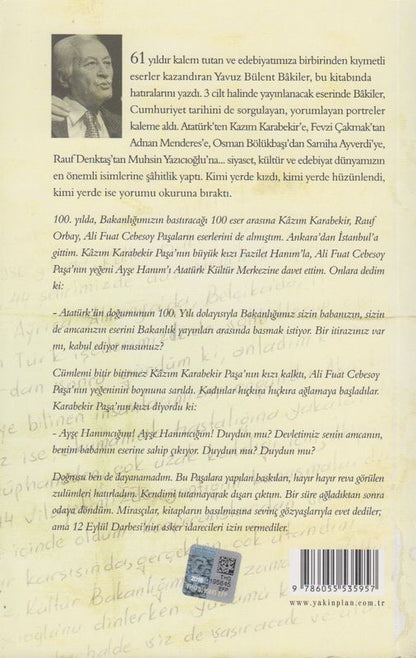 61 yıldır kalem tutan ve edebiyatımıza birbirinden kıymetli
eserler kazandıran Yavuz Bülent Bâkiler, bu kitabında
hatıralarını yazdı. 3 cilt halinde yayınlanacak eserinde Bâkiler,
Cumhuriyet tarihini de sorgulayan, yorumlayan portreler
kaleme aldı. Atatürk'ten Kazım Karabekir'e, Fevzi Çakmak'tan
Adnan Menderes'e, Osman Bölükbaşı'dan Samiha Ayverdi'ye,
Rauf Denktaş'tan Muhsin Yazıcıoğlu'na... siyaset, kültür ve edebiyat dünyamızın
en önemli isimlerine şâhitlik yaptı. Kimi yerde kızdı, kimi yerde hüzünlendi,
kimi yerde ise yorumu okuruna bıraktı.
100. yılda, Bakanlığımızın bastıracağı 100 eser arasına Kâzım Karabekir, Rauf
Orbay, Ali Fuat Cebesoy Paşaların eserlerini de almıştım. Ankara'dan İstanbul'a
gittim. Kâzım Karabekir Paşa'nın büyük kızı Fazilet Hanım'la, Ali Fuat Cebesoy
Paşa'nın yeğeni Ayşe Hanım'ı Atatürk Kültür Merkezine davet ettim. Onlara dedim
ki:
- Atatürk'ün doğumunun 100. Yılı dolayısıyla Bakanlığımız sizin babanızın, sizin
de amcanızın eserini Bakanlık yayınları arasında basmak istiyor. Bir itirazınız var
mı, kabul ediyor musunuz?
Cümlemi bitir bitirmez Kâzım Karabekir Paşa'nın kızı kalktı, Ali Fuat Cebesoy
Paşa'nın yeğeninin boynuna sarıldı. Kadınlar hıçkıra hıçkıra ağlamaya başladılar.
Karabekir Paşa'nın kızı diyordu ki:
- Ayşe Hanımcığım! Ayşe Hanımcığım! Duydun mu? Devletimiz senin amcanın,
benim babamın eserine sahip çıkıyor. Duydun mu? Duydun mu?
Doğrusu ben de dayanamadım. Bu Paşalara yapılan baskıları, hayır hayır reva görülen
zulümleri hatırladım. Kendimi tutamayarak dışarı çıktım. Bir süre ağladıktan sonra
odaya döndüm. Mirasçılar, kitapların basılmasına sevinç gözyaşlarıyla evet dediler;
ama 12 Eylül Darbesi'nin asker idarecileri izin vermediler.
9 786055 535957
www.yakinplan.com.tr